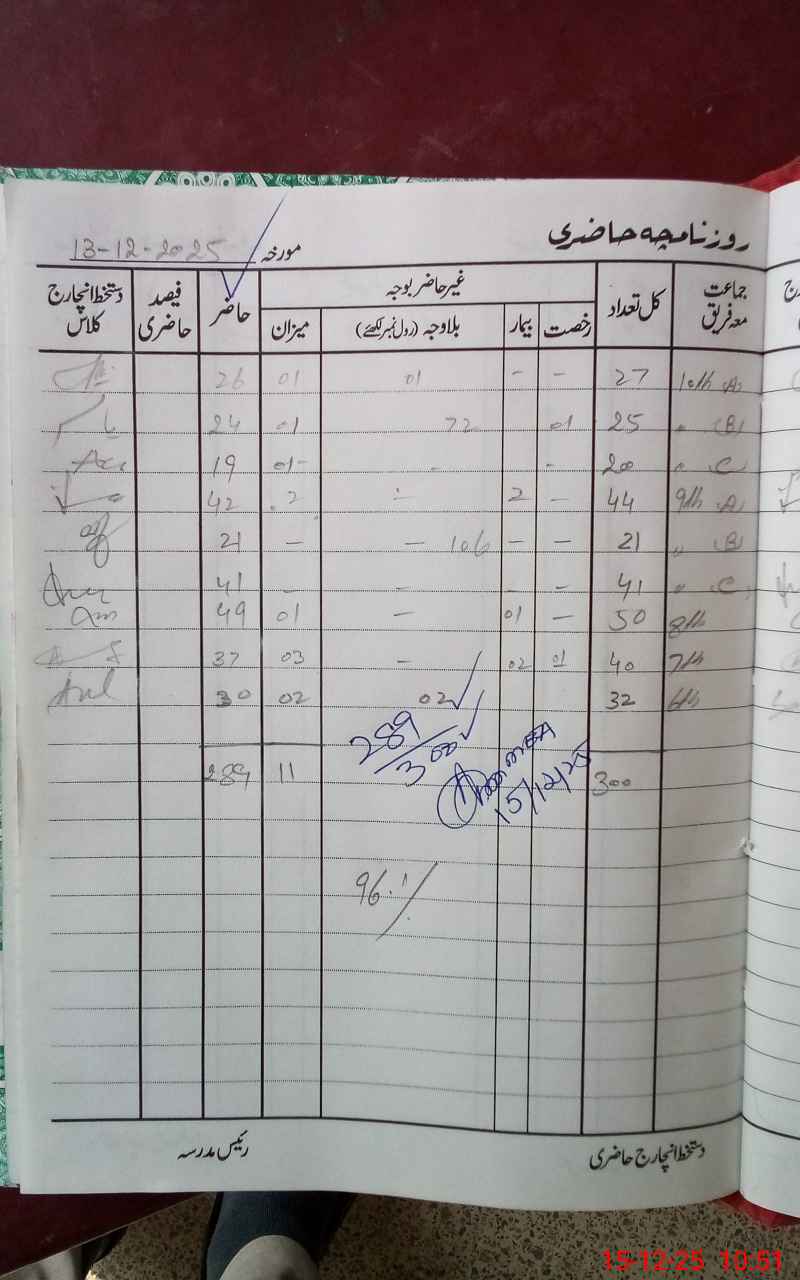 روزنامچہ حاضری
مورخہ 13-12-2025
جماعت معہ فریق کل تعداد غیر حاضر بوجہ حاضر فیصد حاضری دستخط انچارج کلاس
رخصت بیمار بلاوجہ (رول نمبر لکھئے) میزان
10th (A) 27 - - 01 01 26
" (B) 25 01 72 01 24
" C 20 - - 01- 19
9th (A) 44 - 2 - 2 42
" (B) 21 - - 106 - - 21
" C 41 - - - - 41
8th 50 - 01 - 01 49
7th 40 01 02 - 03 37
6th 32 02 02 30
300 11 289
289/300
15/12/25
96.1%
دستخط انچارج حاضری رئیس مدرسہ
15-12-25 10:51